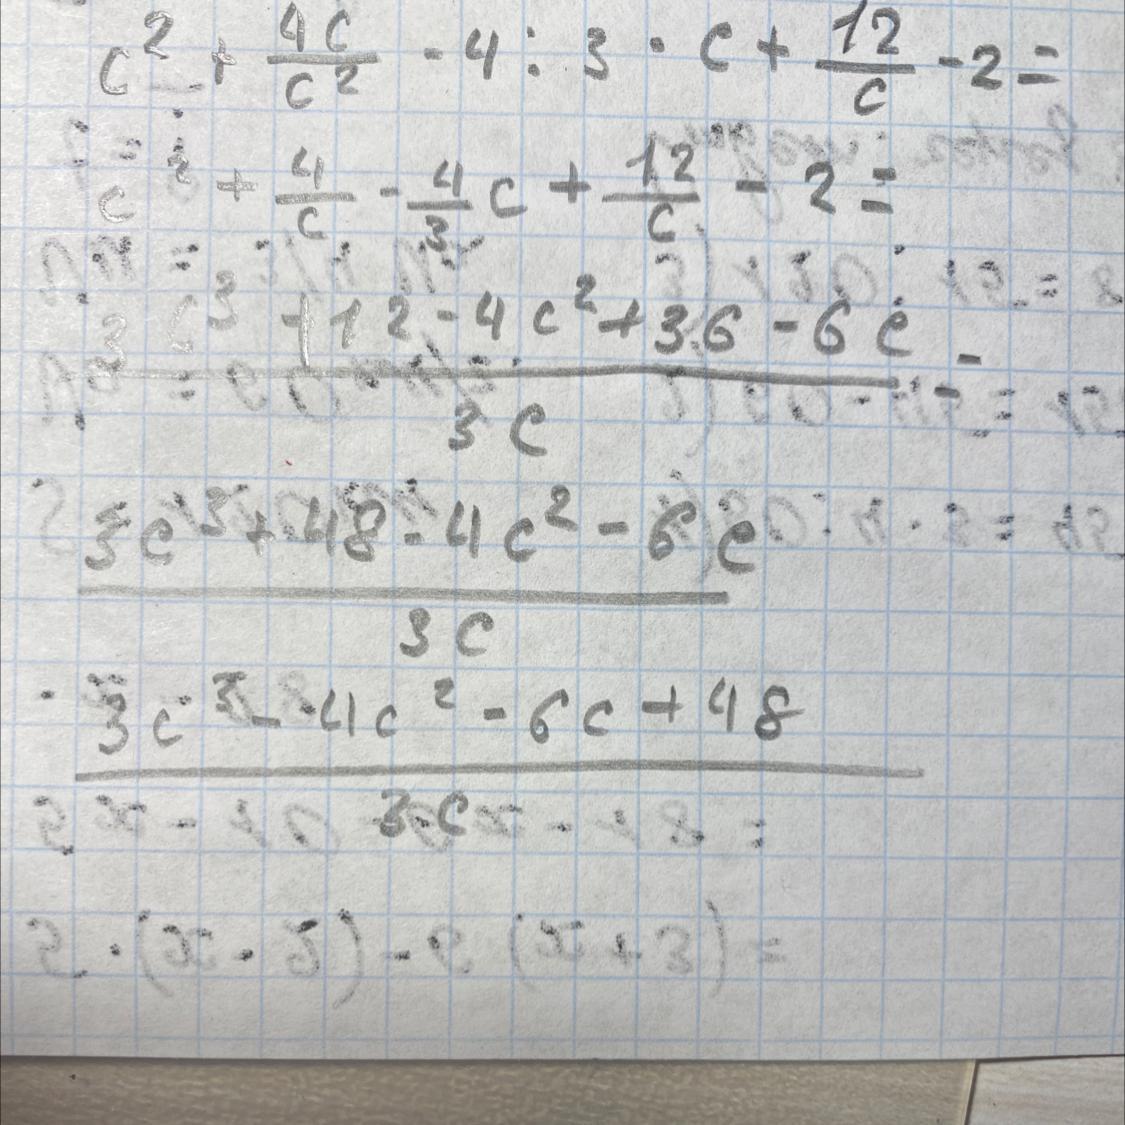 c² + 4c/c² - 4 : 3 · c + 12/c - 2 =
c² + 4/c - 4/3 c + 12/c - 2 =
3c³ + 12 - 4c² + 36 - 6c / 3c =
3c³ + 48 - 4c² - 6c / 3c
3c³ - 4c² - 6c + 48 / 3c